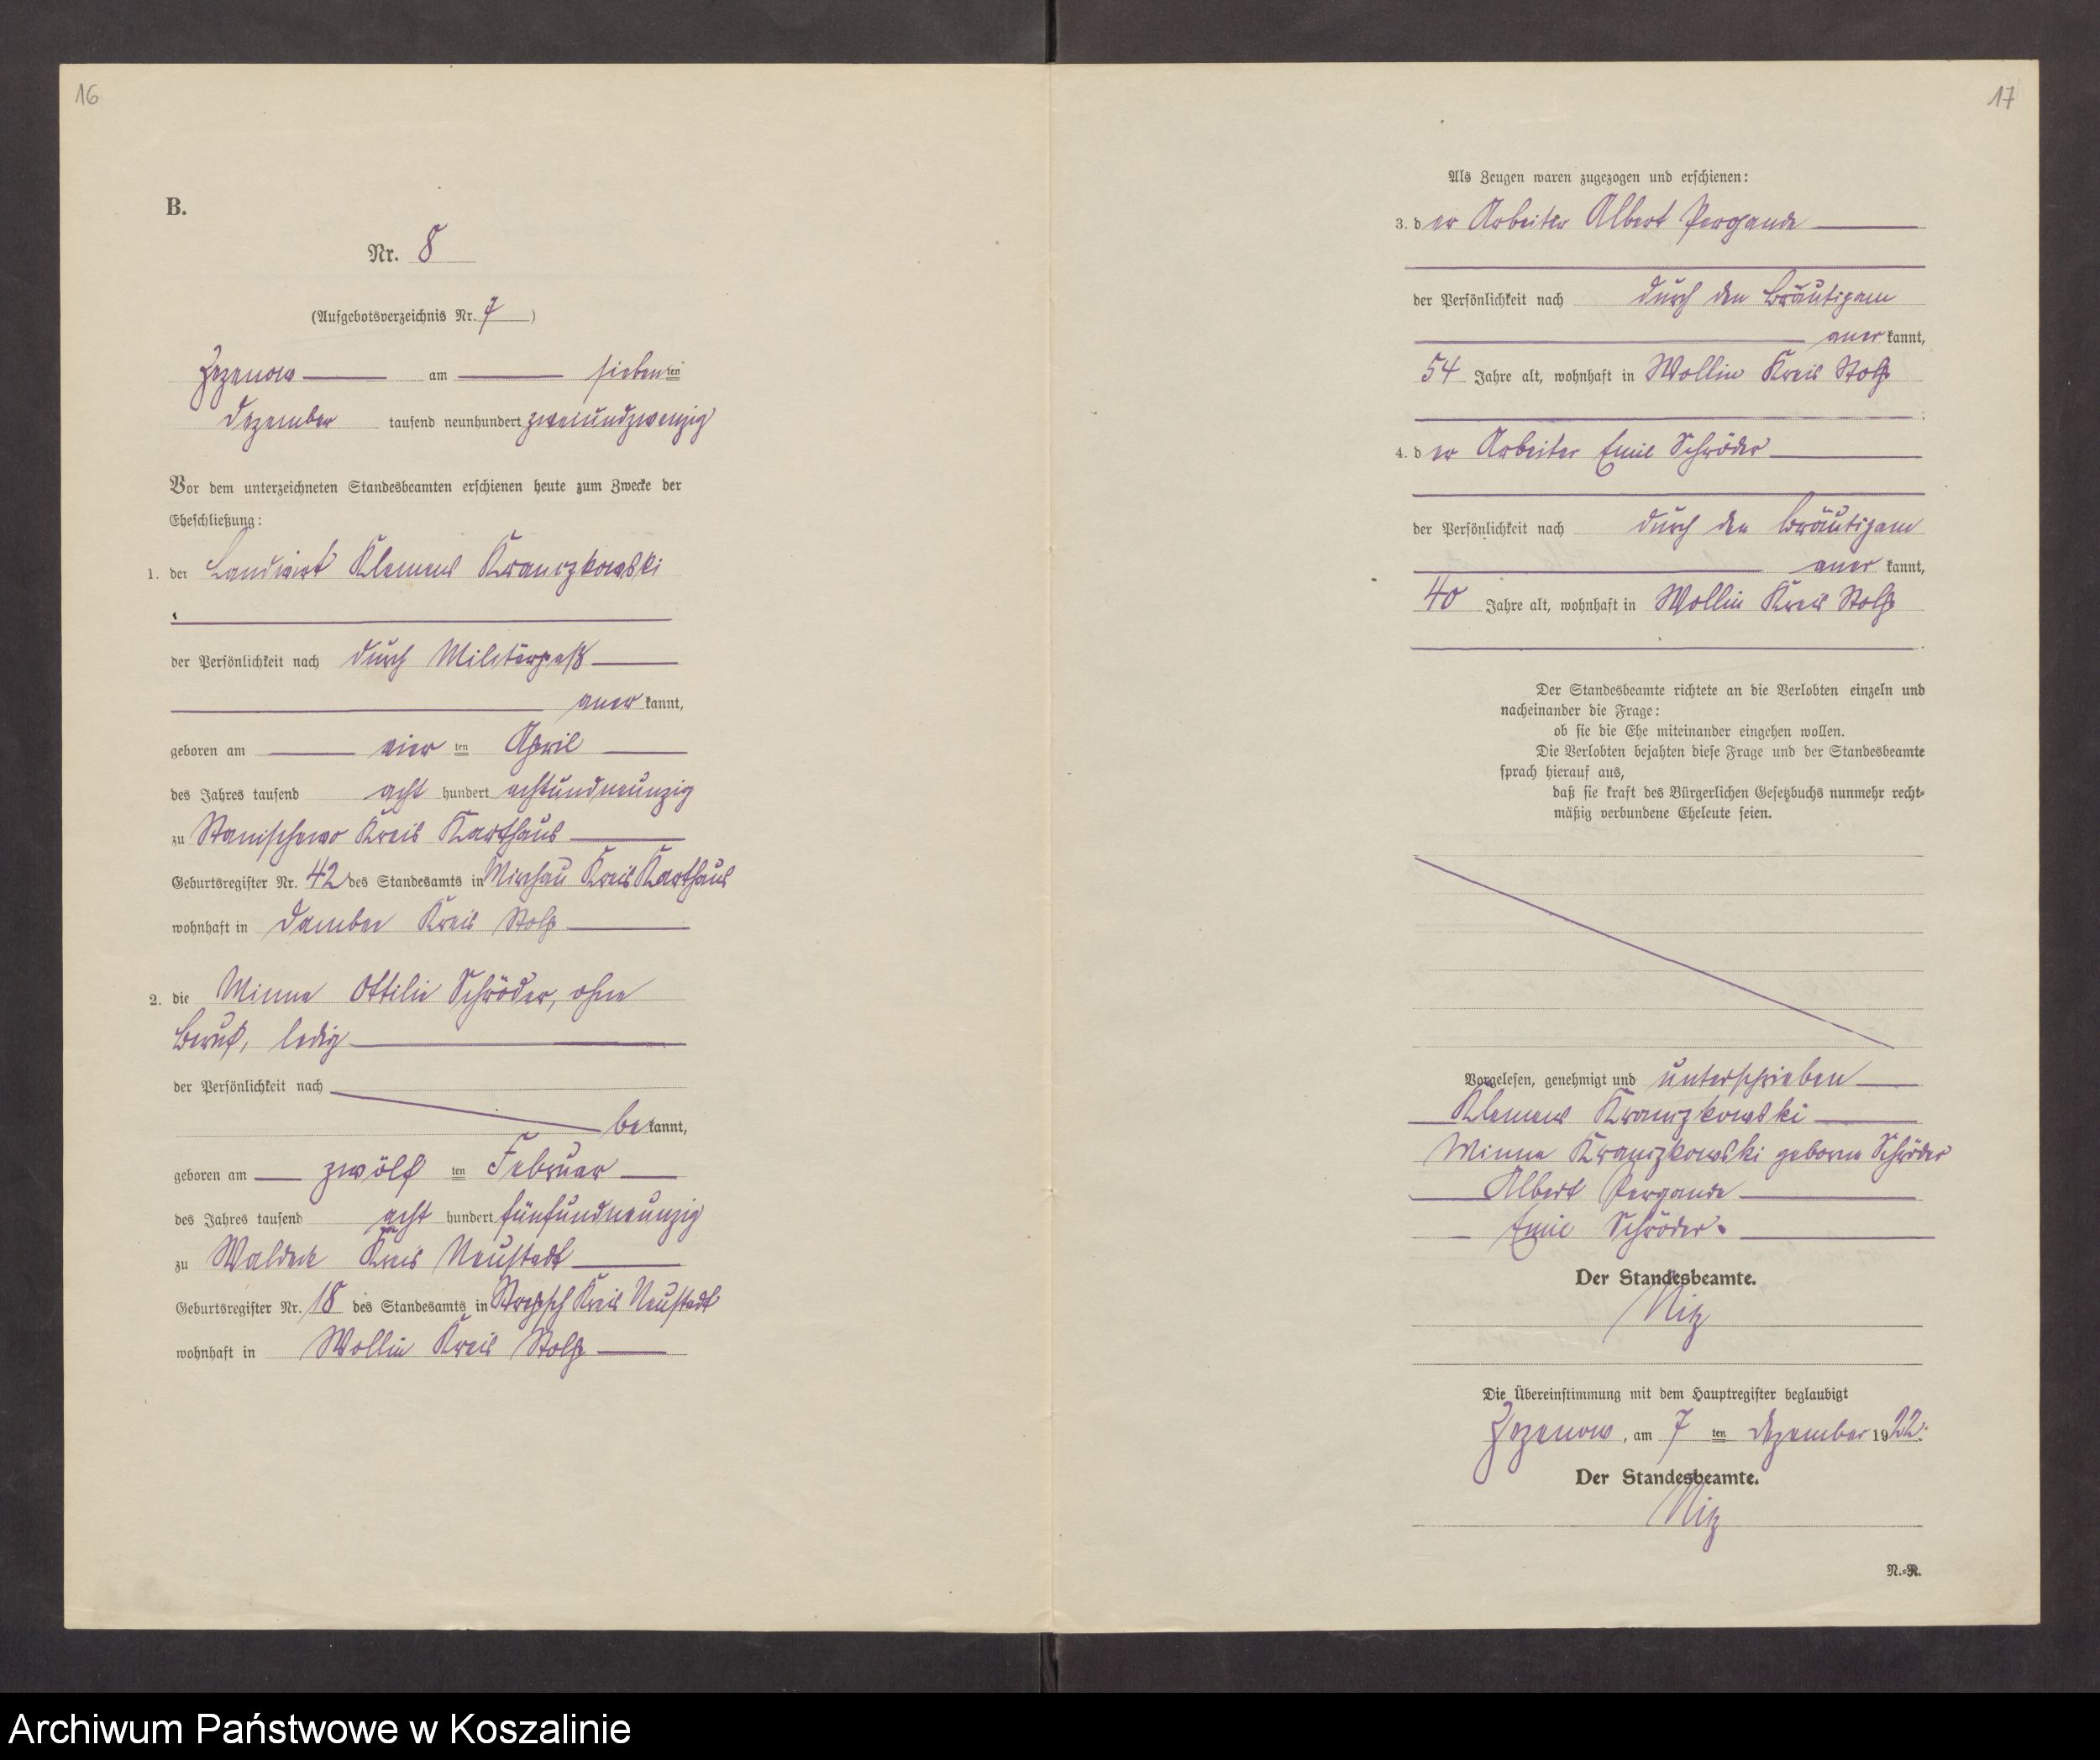 16
B.
Nr. 8
(Aufgebotsverzeichnis Nr. 7)
Zezenow am siebenten
Dezember tausend neunhundert zweiundzwanzig
Vor dem unterzeichneten Standesbeamten erschienen heute zum Zwecke der
Eheschließung:
1. der Landwirt Klemens
der Persönlichkeit nach durch Militärpaß
anerkannt,
geboren am vierten April
des Jahres tausend achthundert achtundneunzig
zu Stanischewo Kreis Karthaus
Geburtsregister Nr. 42 des Standesamts in Mirchau Kreis Karthaus
wohnhaft in Damben Kreis Stolp
2. die Minna Ottilie Schröder, ohne
Beruf, ledig
der Persönlichkeit nach
bekannt,
geboren am zwölften Februar
des Jahres tausend achthundert fünfundneunzig
zu Waldeck Kreis Neustadt
Geburtsregister Nr. 18 des Standesamts in Strepsch Kreis Neustadt
wohnhaft in Wollin Kreis Stolp
17
Als Zeugen waren zugezogen und erschienen:
3. der Arbeiter Albert Pergande
der Persönlichkeit nach durch den Bräutigam
anerkannt,
54 Jahre alt, wohnhaft in Wollin Kreis Stolp
4. der Arbeiter Emil Schröder
der Persönlichkeit nach durch den Bräutigam
anerkannt,
40 Jahre alt, wohnhaft in Wollin Kreis Stolp
Der Standesbeamte richtete an die Verlobten einzeln und
nacheinander die Frage:
ob sie die Ehe miteinander eingehen wollen.
Die Verlobten bejahten diese Frage und der Standesbeamte
sprach hierauf aus,
daß sie kraft des Bürgerlichen Gesetzbuchs nunmehr recht-
mäßig verbundene Eheleute seien.
Vorgelesen, genehmigt und unterschrieben
Klemens
Minna geborne Schröder
Albert Pergande
Emil Schröder.
Der Standesbeamte.
Nitz
Die Übereinstimmung mit dem Hauptregister beglaubigt
Zezenow, am 7ten Dezember 1922.
Der Standesbeamte.
Nitz
N.-R.
Archiwum Państwowe w Koszalinie